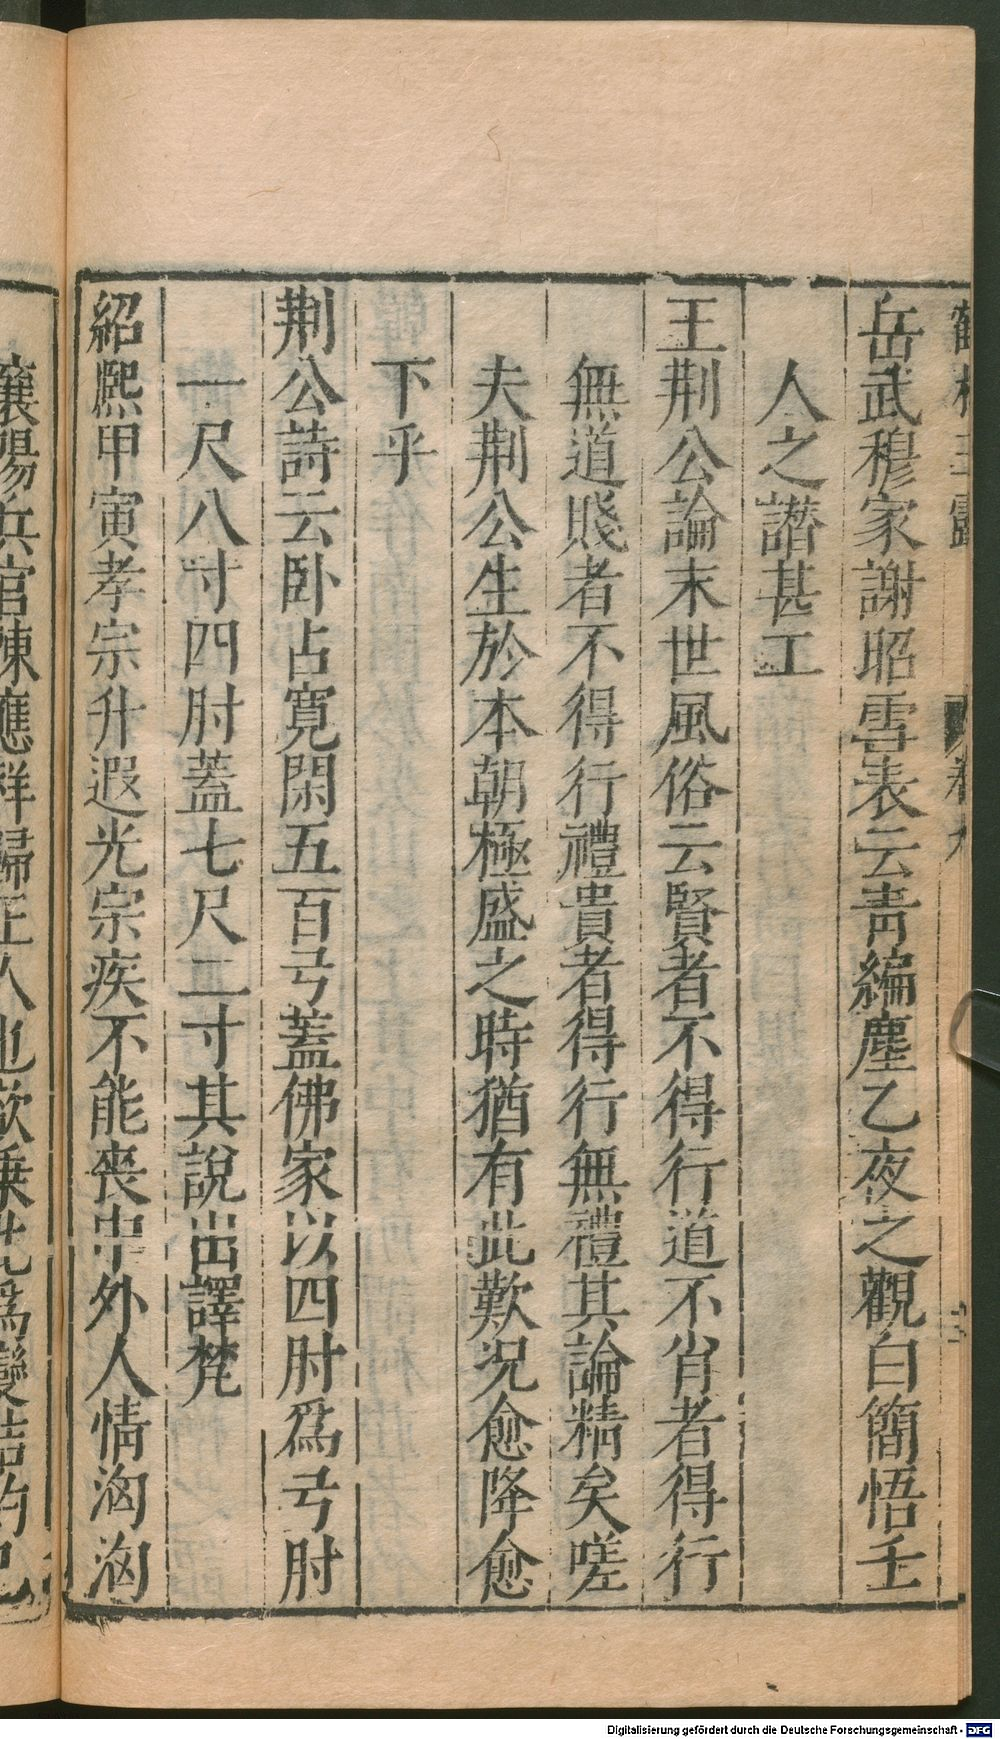 岳武穆家謝昭雪表云青編塵乙夜之觀白簡悟壬
人之譖甚工
王荆公論末世風俗云賢者不得行道不肖者得行
無道賤者不得行禮貴者得行無禮其論精矣嗟
夫荆公生於本朝極盛之時猶有此歎况愈降愈
下乎
荆公詩云卧占寛閑五百弓蓋佛家以四肘爲弓肘
一尺八寸四肘蓋七尺二寸其說出譯梵
紹熈甲寅孝宗升遐光宗疾不能喪中外人情洶洶
襄陽兵官陳應祥歸正人也欲乗此爲變結約已
Digitalisierung gefördert durch die Deutsche Forschungsgemeinschaft - DFG